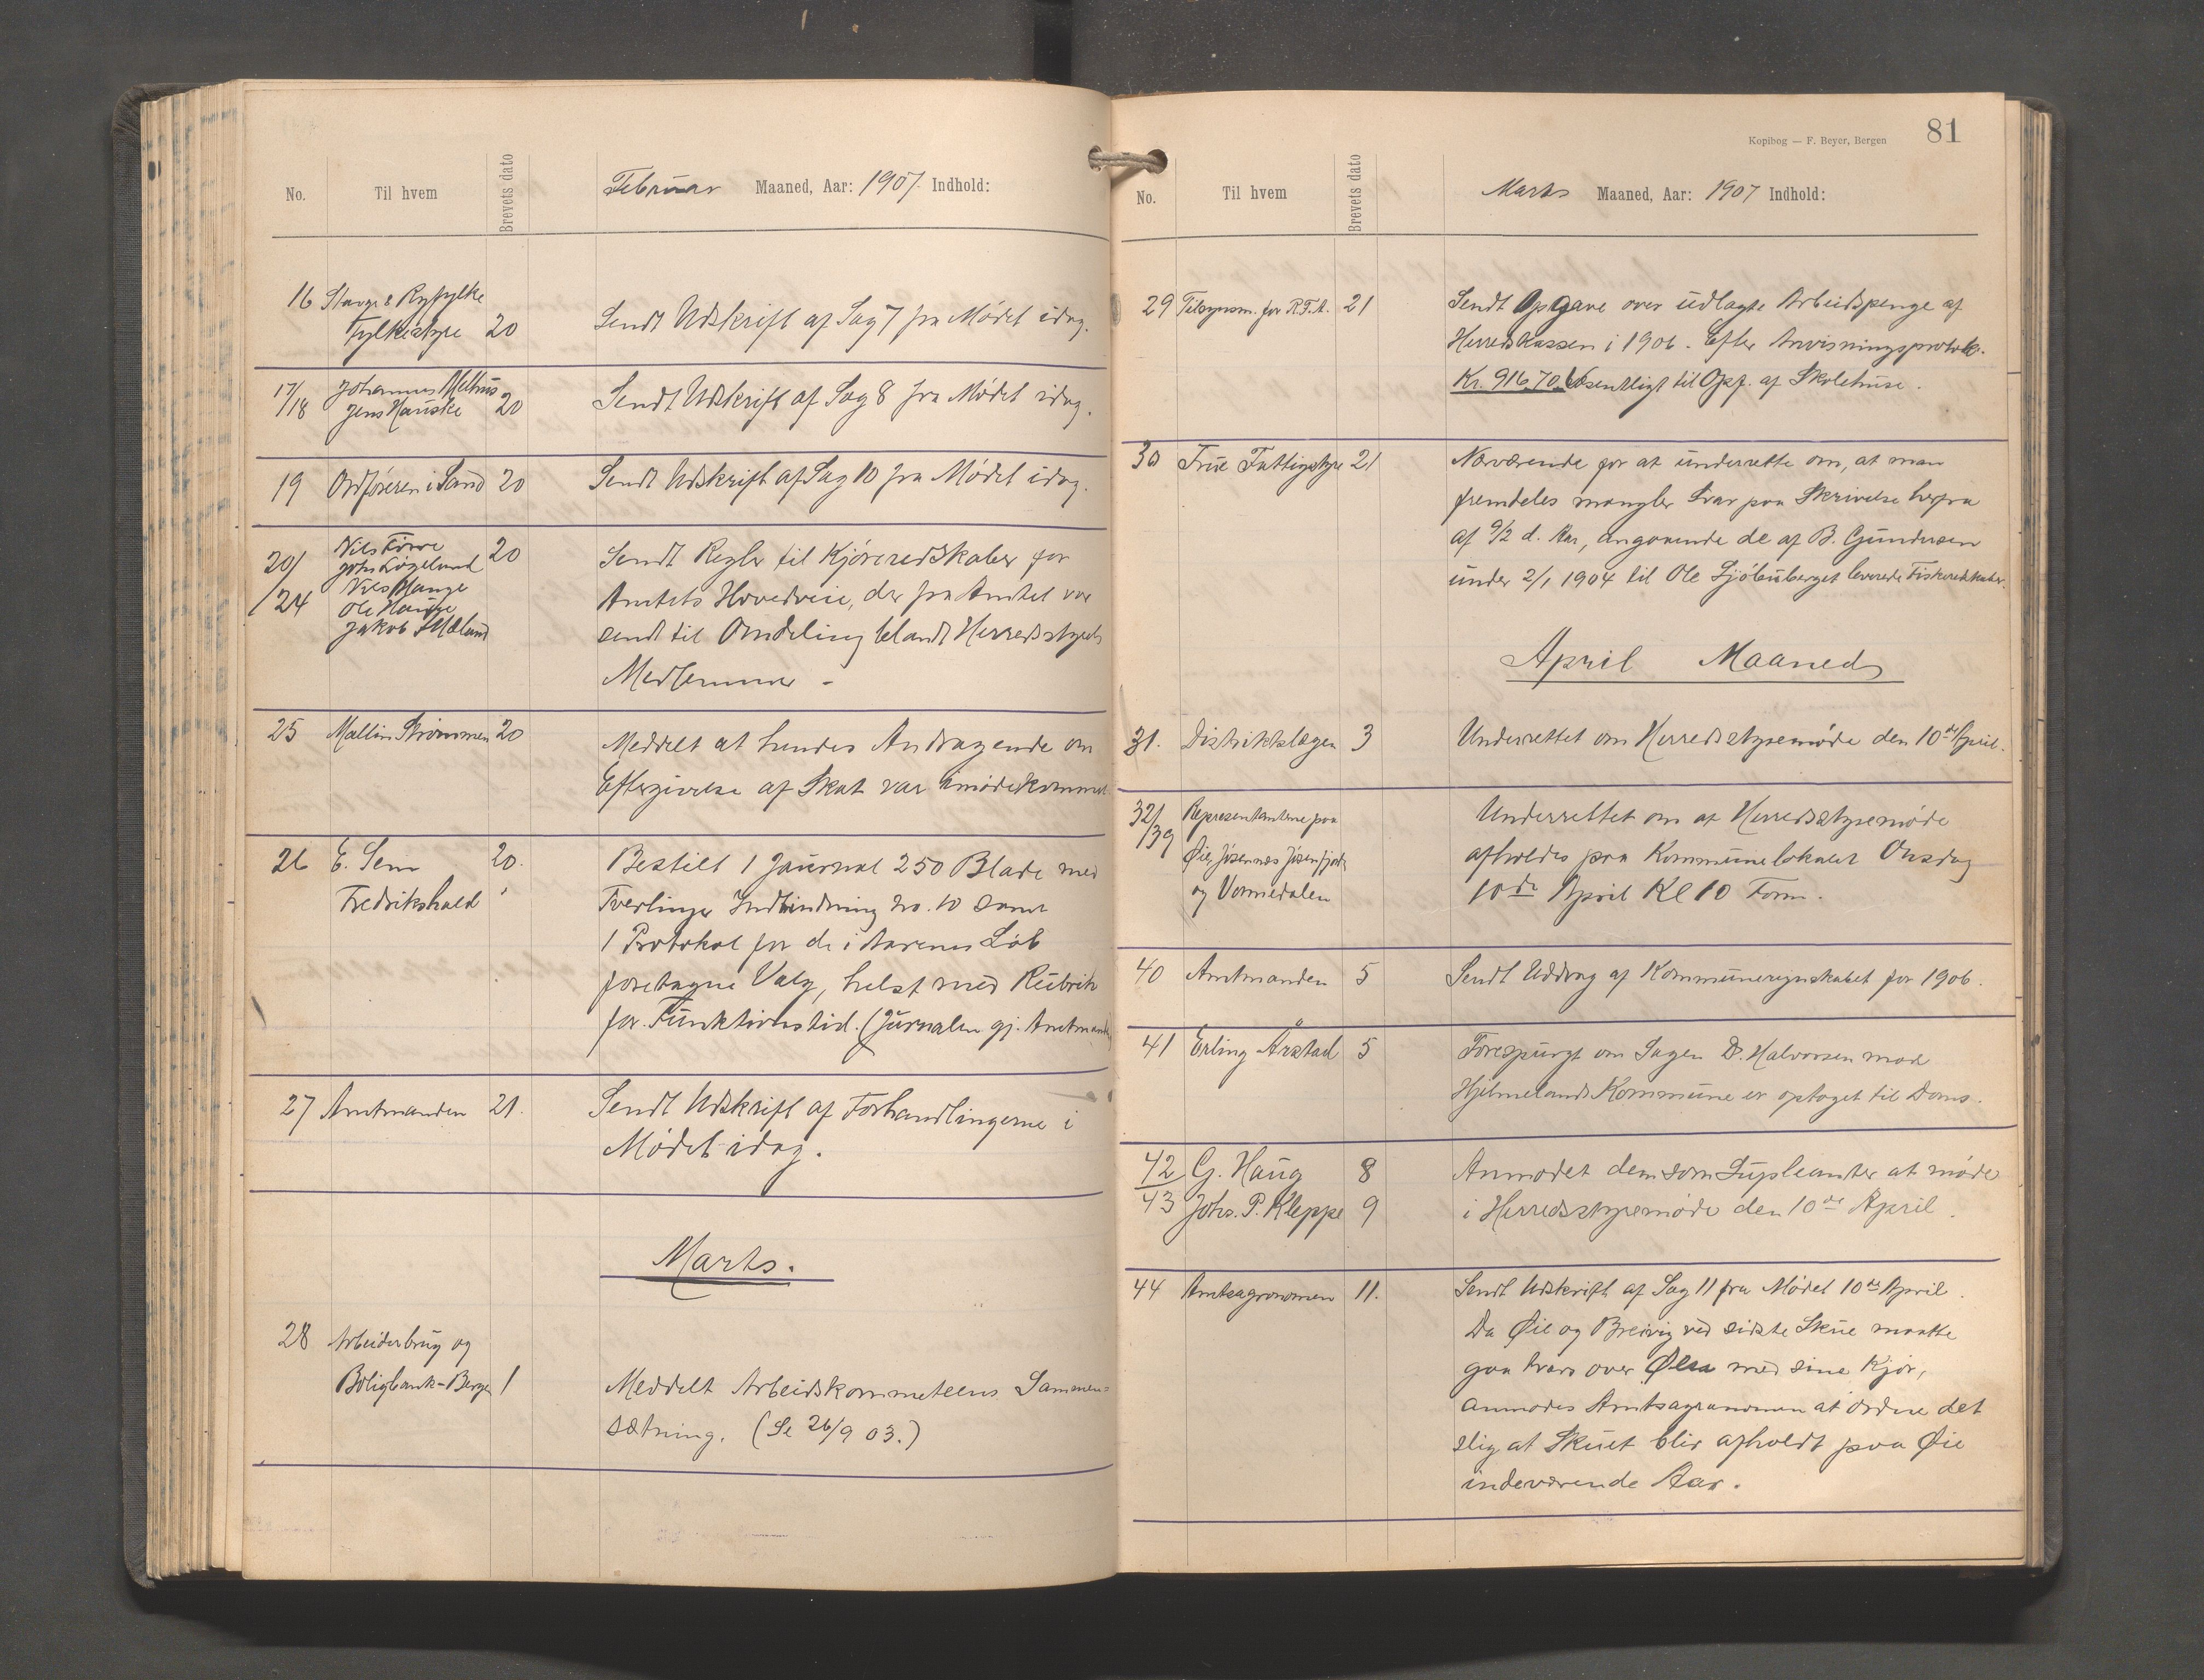 No. Til hvem Brevets dato Februar Maaned, Aar: 1907. Indhold:
16 Stavgr & Ryfylke
Fylkestyre 20 Sendt Udskrift af Sag 7 fra Mødet idag.
17/18 Johannes Melhus
Jens Hauske 20 Sendt Udskrift af Sag 8 fra Mødet idag.
19 Ordføreren i Sand 20 Sendt Udskrift af Sag 10 fra Mødet idag.
20/24 Nils
John 20 Sendt Regler til Kjøreredskaber for
Nils Hauge
Ole Hauge Amtets Hovedveie, der fra Amtet var
Jakob Mæland sendt til Omdeling blandt Herredsstyrets
Medlemmer -
25 Mallin Strømmen 20 Meddelt at hendes Andragende om
Eftergivelse af Skat var imødekommet
26 E. Sem 20. Bestilt 1 Journal 250 Blade med
Fredrikshald Indbindning no. 10 samt
1 Protokol for de i Aarenes Løb
foretagne Valg, helst med Rubrik
for Funktionstid. (Jurnalen gj. Amtmanden
27 Amtmanden 21. Sendt Udskrift af Forhandlingerne i
Mødet idag.
Marts.
28 Arbeiderbrug og
Boligbank - Bergen 1 Meddelt Arbeidskommiteens Sammen=
sætning. (Se 26/9 03.)
Kopibog — F. Beyer, Bergen 81
No. Til hvem Brevets dato Marts Maaned, Aar: 1907 Indhold:
29 Tilsynsm. for R.F.A. 21 Sendt Opgave over udlagte Arbeidspenge af
Herredskassen i 1906. Efter Anvisningsprotok.
Kr. 91670 Væsentligt til Opf. af Skolehuse.
30 Frue Fattigstyre 21 Nærværende for at underrette om, at man
fremdeles mangler Svar paa Skrivelse herfra
af 9/2 d. Aar, angaaende de af B. Gundersen
under 2/1 1904 til Ole leverede Fiskeredskaber.
April Maaned
31. Distriktslægen 3 Underrettet om Herredsstyremøde den 10de April.
32/39 Repræsentanterne paa Underrettet om at Herredsstyremøde
Øie, Jøsenæs Jøsenfjord afholdes paa Kommunelokalet Onsdag
og Vormedalen 10de April Kl 10 Form.
40 Amtmanden 5 Sendt Uddrag af Kommuneregnskabet for 1906.
41 Erling Årstad 5 Forespurgt om Sagen D. Halvorsen mod
Hjelmelands Kommune er optaget til Doms.
42 G. Haug 8 Anmodet dem som Supleanter at møde
43 Johs. P. Kleppe 9 i Herredsstyremøde den 10de April.
44 Amtsagronomen 11. Sendt Udskrift af Sag 11 fra Mødet 10de April.
Da Øie og Breivig ved sidste Skue maatte
gaa tvers over Øen med sine Kjør,
anmodes Amtsagronomen at ordne det
slig at Skuet blir afholdt paa Øie
indeværende Aar.